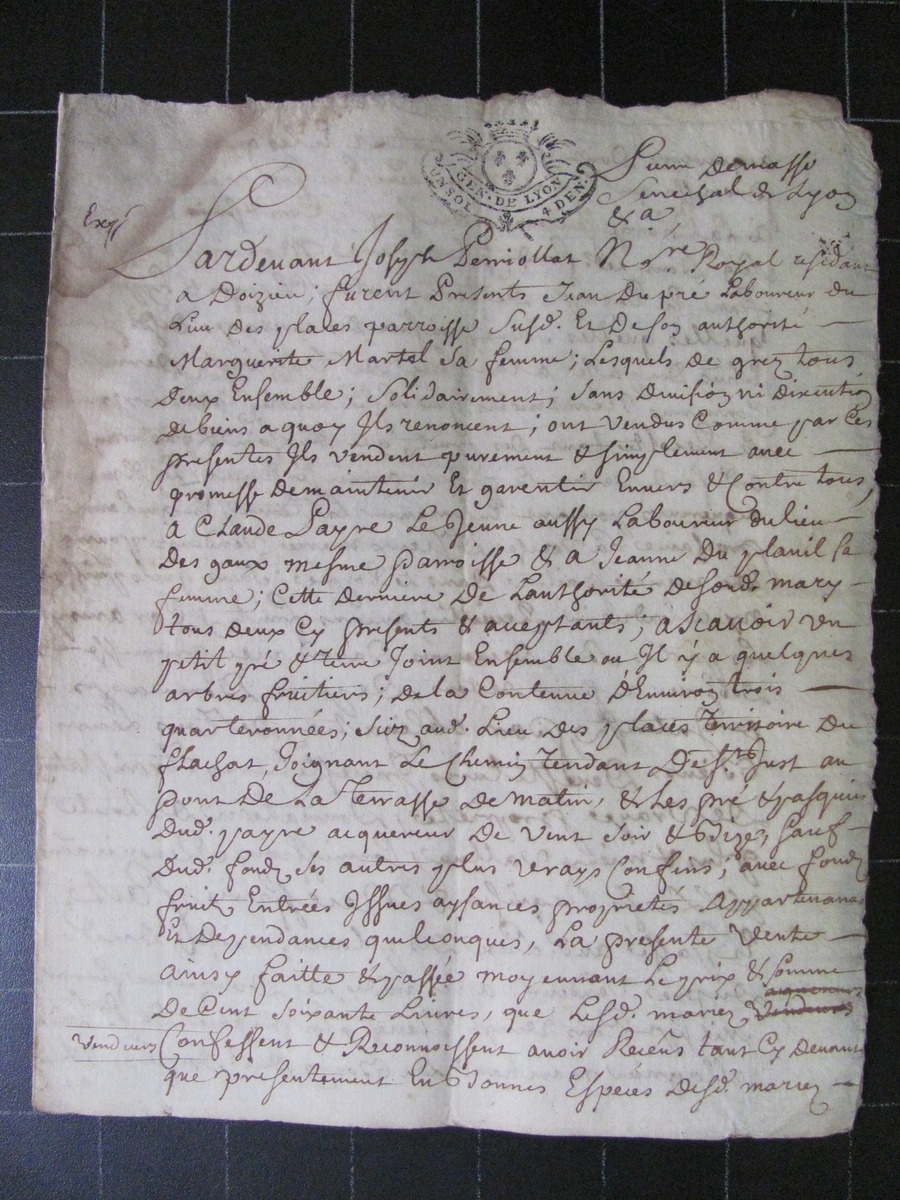 GEN. DE LYON
UN SOL 4 DEN.
Senechal de Lyon
&a
Expé
Pardevant Joseph Perriollat No.re Royal residant
a Doizieu; furent Presents Jean Dupré Laboureur du
Lieu Des places parroisse susd. Et De son authorité
Marguerite Martel sa femme; Lesquels de grez tous
deux Ensemble; solidairement; sans Division ni Discution
de biens a quoy Ils renoncent; ont vendus Comme par Ces
presentes Ils vendent purement & simplement avec
promesse de maintenir Et garentir Envers & Contre tous,
A Claude Payre Le Jeune aussy Laboureur du lieu
Des gaux mesme Parroisse & a Jeanne Du planil sa
femme; Cette derniere De L'authorité de sond. mary
tous deux Cy presents & acceptants; ascavoir un
petit pré & terre Joint Ensemble ou Il y a quelques
arbres fruitiers; de la Contenue D'Environ trois
quarteronnées; sizz aud. Lieu Des places Territoire Du
flachat, Joignant Le Chemin tendant De St. Just au
pont De La Terrasse De matin, & Les pré & pasquier
Dud. payre acquereur De vent soir & Bize, sauf
Dud. fondz ses autres plus vrays Confins; avec fondz
fruitz Entrées Issues aysances proprietés Appartenances
Et Dependances quelconques, La presente vente
ainsy faitte & passée moyennant Le prix & somme
De Cent soixante Livres, que Lesd. mariez acquereurs vendeurs
vendeurs Confessent & Reconnoissent avoir Receus tant Cy devant
que presentement En Bonnes Espèces Desd. mariez